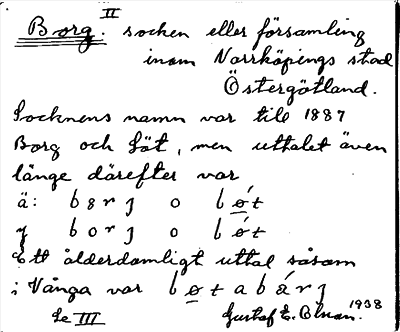 II
Borg. socken eller församling
inom Norrköpings stad
Östergötland.
Socknens namn var till 1887
Borg och Löt, men uttalet även
länge därefter var
ä: b o r j o b ø t
y b o r j o b ø t
Ett ålderdomligt uttal såsom
i Vånga var b ø t a b á r j
Se III Gustaf E. 1938